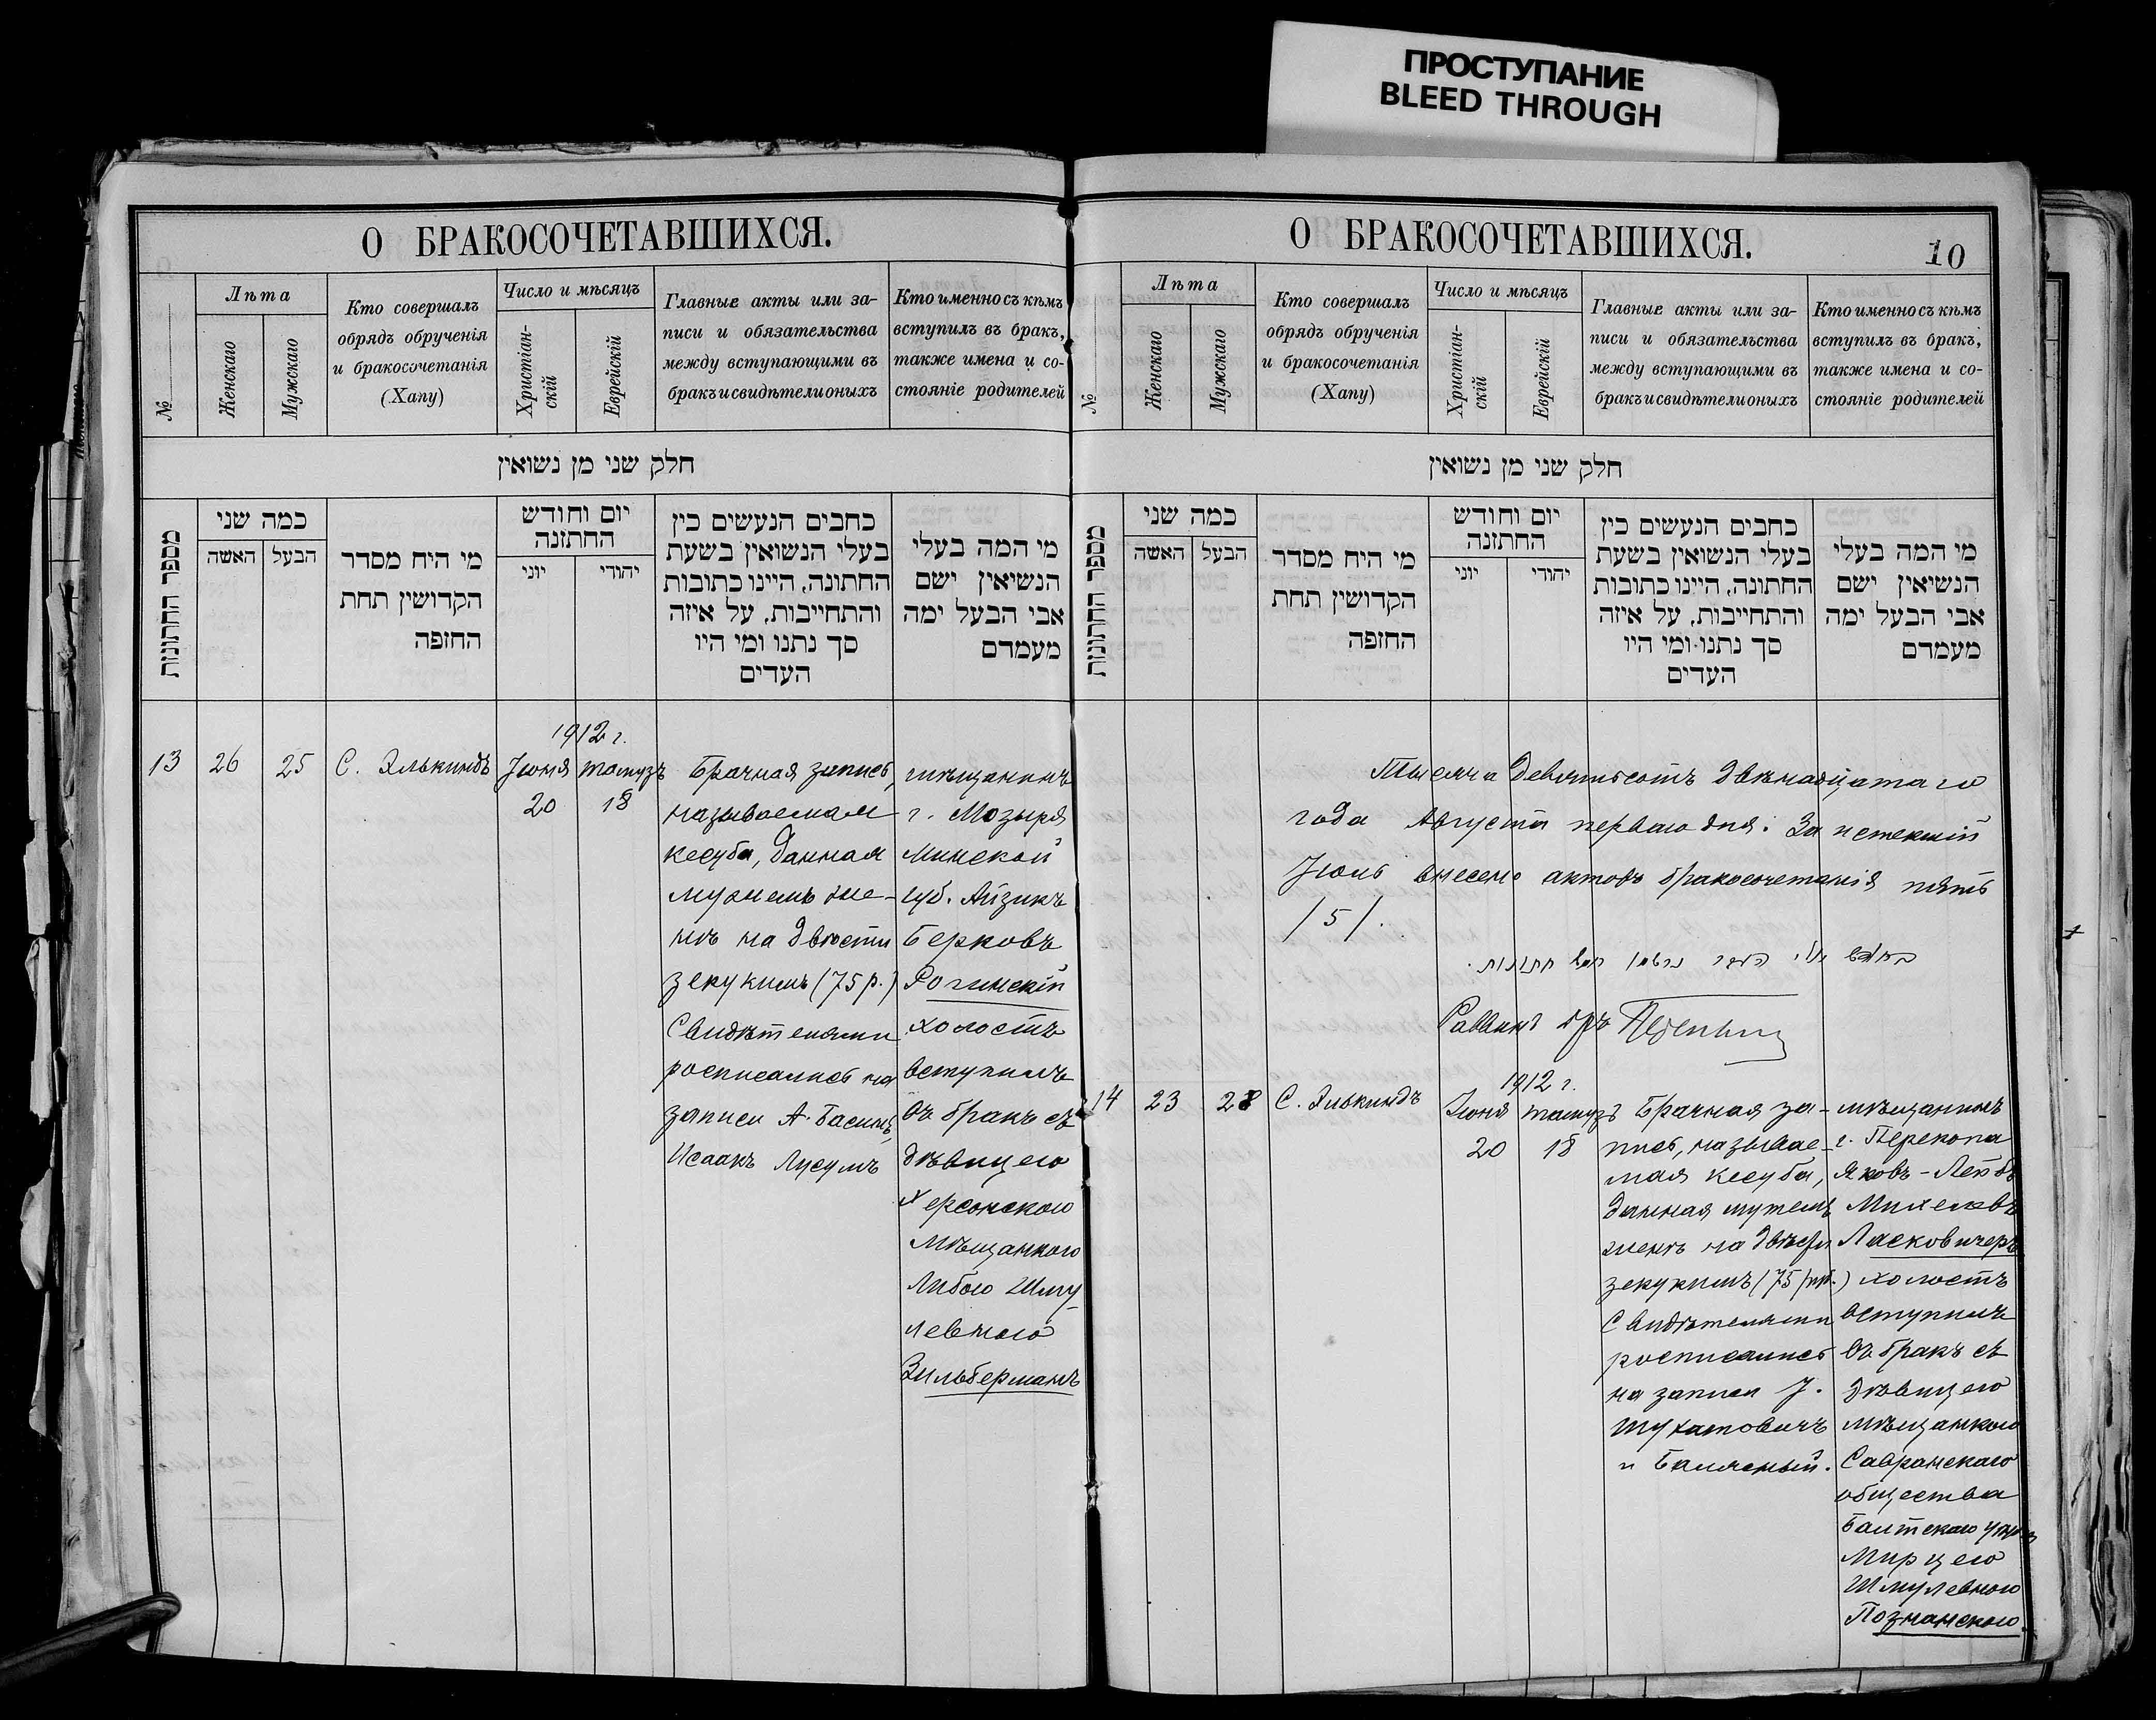 ПРОСТУПАНИЕ
BLEED THROUGH
О БРАКОСОЧЕТАВШИХСЯ.
№
Лѣта
Женскаго
Мужскаго
Кто совершалъ
обрядъ обрученія
и бракосочетанія
(Хапу)
Число и мѣсяцъ
Христіан-
скій
Еврейскій
Главные акты или за-
писи и обязательства
между вступающими въ
бракъ и свидѣтели оныхъ
Кто именно съ кѣмъ
вступилъ въ бракъ,
также имена и со-
стояніе родителей
חלק שני מן נשואין
מספר החתונות
כמה שני
האשה
הבעל
מי היח מסדר
הקדושין תחת
החופה
יום וחודש
החתונה
יוני
יהודי
כתבים הנעשים בין
בעלי הנשואין בשעת
החתונה, היינו כתובות
והתחייבות, על איזה
סך נתנו ומי היו
העדים
מי המה בעלי
הנשיאין ישם
אבי הבעל ימה
מעמדם
13
26
25
С. Элькиндъ
1912 г.
Іюня
20
тамузъ
18
Брачная запись,
называемая
кесуба, данная
мужемъ же-
нѣ на двѣсти
зекукимъ (75 р.)
Свидѣтелями
росписались на
записи А. Басинъ,
Исаакъ Лусумъ
мѣщанинъ
г. Мозыря
Минской
губ. Айзикъ
Берковъ
Рогинскій
холостъ
вступилъ
въ бракъ съ
дѣвицею
Херсонскою
мѣщанкою
Либою Шму-
левною
Зильберманъ
О БРАКОСОЧЕТАВШИХСЯ.
10
№
Лѣта
Женскаго
Мужскаго
Кто совершалъ
обрядъ обрученія
и бракосочетанія
(Хапу)
Число и мѣсяцъ
Христіан-
скій
Еврейскій
Главные акты или за-
писи и обязательства
между вступающими въ
бракъ и свидѣтели оныхъ
Кто именно съ кѣмъ
вступилъ въ бракъ,
также имена и со-
стояніе родителей
חלק שני מן נשואין
מספר החתונות
כמה שני
האשה
הבעל
מי היח מסדר
הקדושין תחת
החופה
יום וחודש
החתונה
יוני
יהודי
כתבים הנעשים בין
בעלי הנשואין בשעת
החתונה, היינו כתובות
והתחייבות, על איזה
סך נתנו ומי היו
העדים
מי המה בעלי
הנשיאין ישם
אבי הבעל ימה
מעמדם
Тысяча девятьсотъ двѣнадцатаго
года Августа перваго дня. За истекшій
Іюль внесено актовъ бракосочетанія пять
/5/.
חתונות.
Раввинъ
14
23
28
С. Элькиндъ
1912 г.
Іюня
20
тамузъ
18
Брачная за-
пись, называе-
мая кесуба,
данная мужемъ
женѣ на двѣсти
зекукимъ (75 руб.)
Свидѣтелями
росписались
на записи І.
Шухатовичъ
и Балясный.
мѣщанинъ
г. Перекопа
Яковъ-Лейбъ
Михелевъ
Ласковичеръ
холостъ
вступилъ
въ бракъ съ
дѣвицею
мѣщанкою
Савранскаго
общества
Балтскаго уѣзда
Мирцею
Шмулевною
Познанскою.